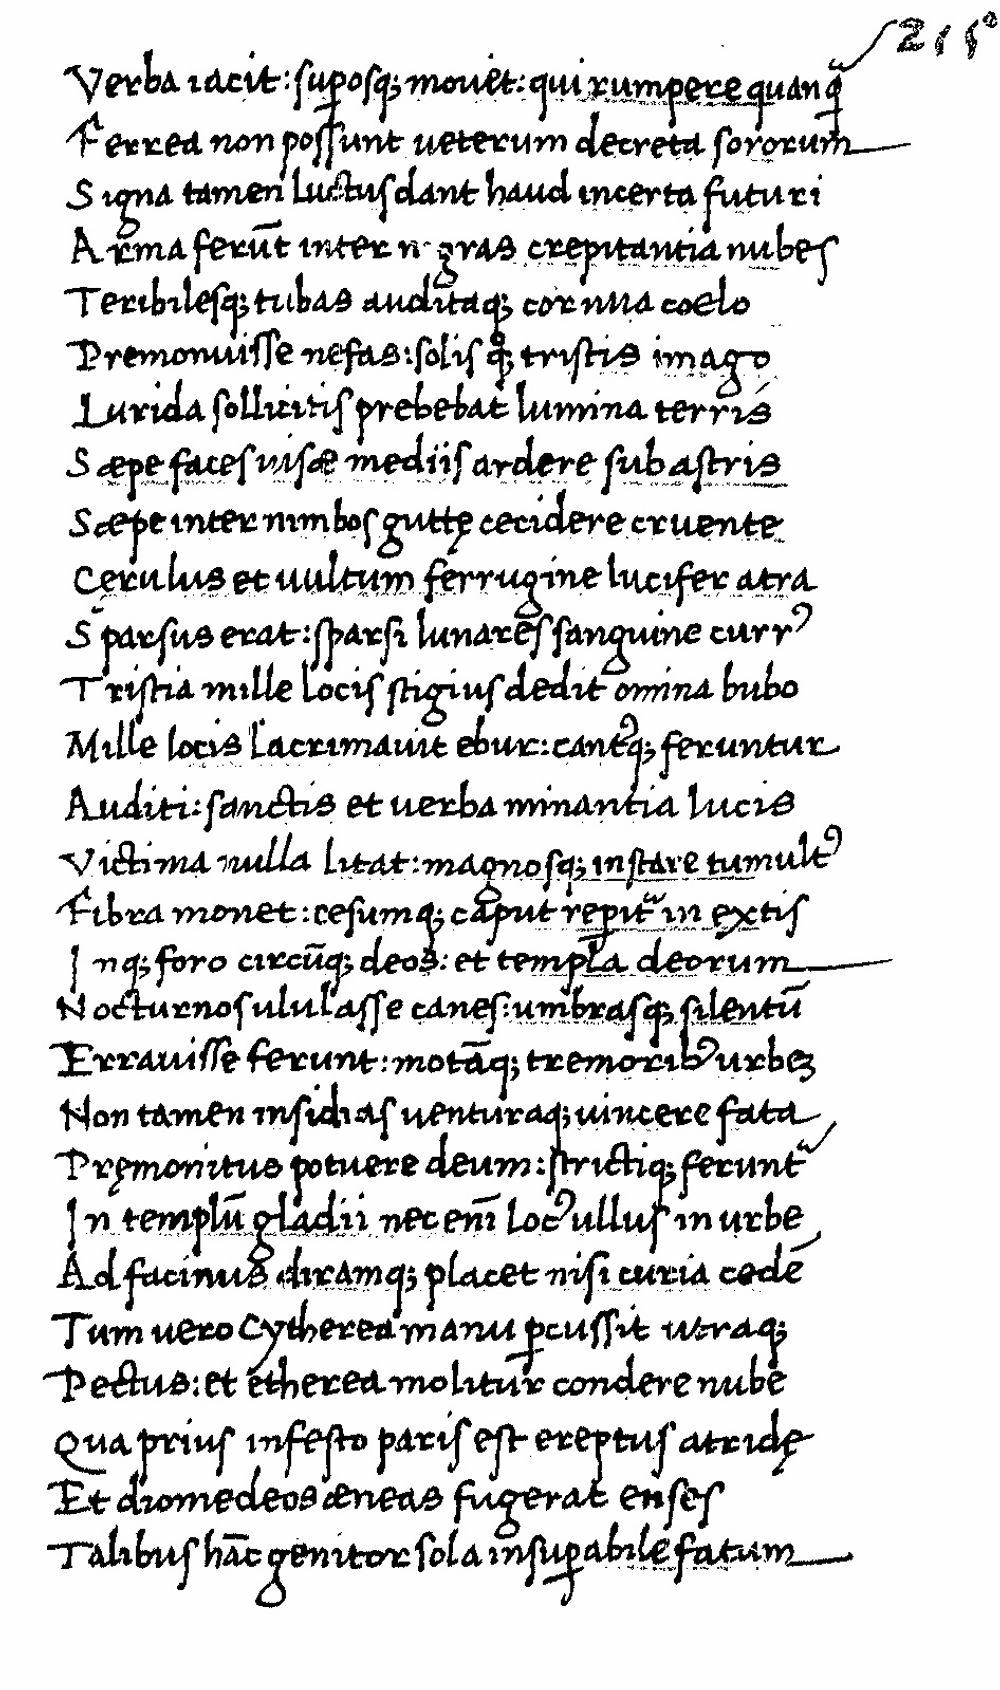 215
Verba iacit: sup̱osq; mouet: qui rumpere quanq̃
Ferrea non possunt ueterum decreta sororum
Signa tamen luctus dant haud incerta futuri
Arma ferūt inter nigras crepitantia nubes
Teribilesq; tubas auditaq; cornua coelo
Premonuisse nefas: solis q; tristis imago
Lurida sollicitis prebebat lumina terris
Sæpe faces uisæ mediis ardere sub astris
Sæpe inter nimbos guttę cecidere cruente
Cęrulus et uultum ferrugine lucifer atra
Sparsus erat: sparsi lunares sanguine currꝰ
Tristia mille locis stigius dedit omina bubo
Mille locis lacrimauit ebur: cantꝰq; feruntur
Auditi: sanctis et uerba minantia lucis
Victima nulla litat: magnosq; instare tumultꝰ
Fibra monet: cesumq; caput rep̱it᷑ in extis
Inq; foro circūq; deos: et templa deorum
Nocturnos ululasse canes: umbrasq; silentū
Errauisse ferunt: motāq; tremoribꝰ urbeꝫ
Non tamen insidias uenturaq; uincere fata
Pręmonitus potuere deum: strictiq; ferunt᷑
In templū gladii nec enī locꝰ ullus in urbe
Ad facinus diramq; placet nisi curia cedē
Tum uero Cytherea manu p̱cussit utraq;
Pectus: et etherea molitur condere nube
Qua prius infesto paris est ereptus atridę
Et diomedeos æneas fugerat enses
Talibus hāc genitor sola insup̱abile fatum